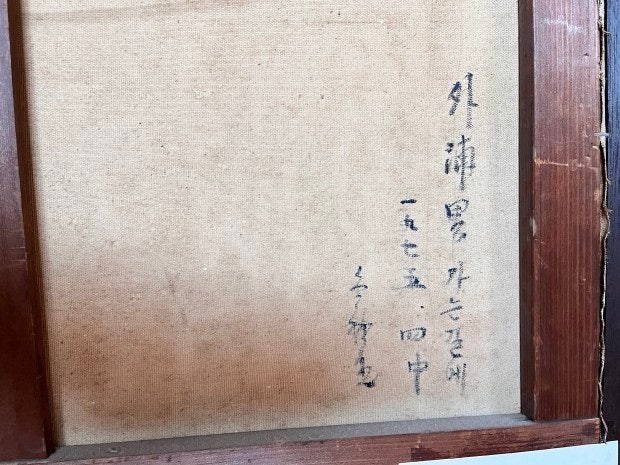 外浦里 가는길에
一九七五.四中